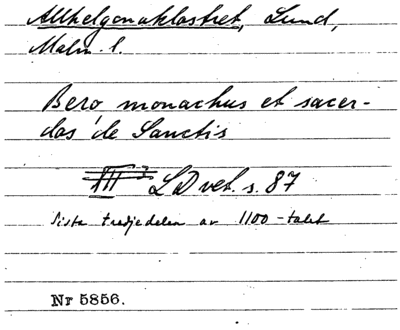 Allhelgonaklostret, Lund,
Malm. l.
Bero, monachus et sacer-
dos de Sanctis
III LD vet. s. 87
Sista tredjedelen av 1100-talet
Nr 5856.